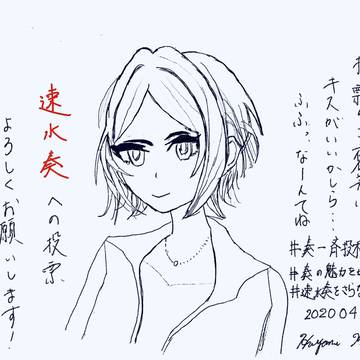 キスがいいかしら…
ふふっ、なーんてね
#奏一斉投
#奏の魅力を
#速水奏をさら
202004
Hayami
速水奏への投票
よろしくお願いします!